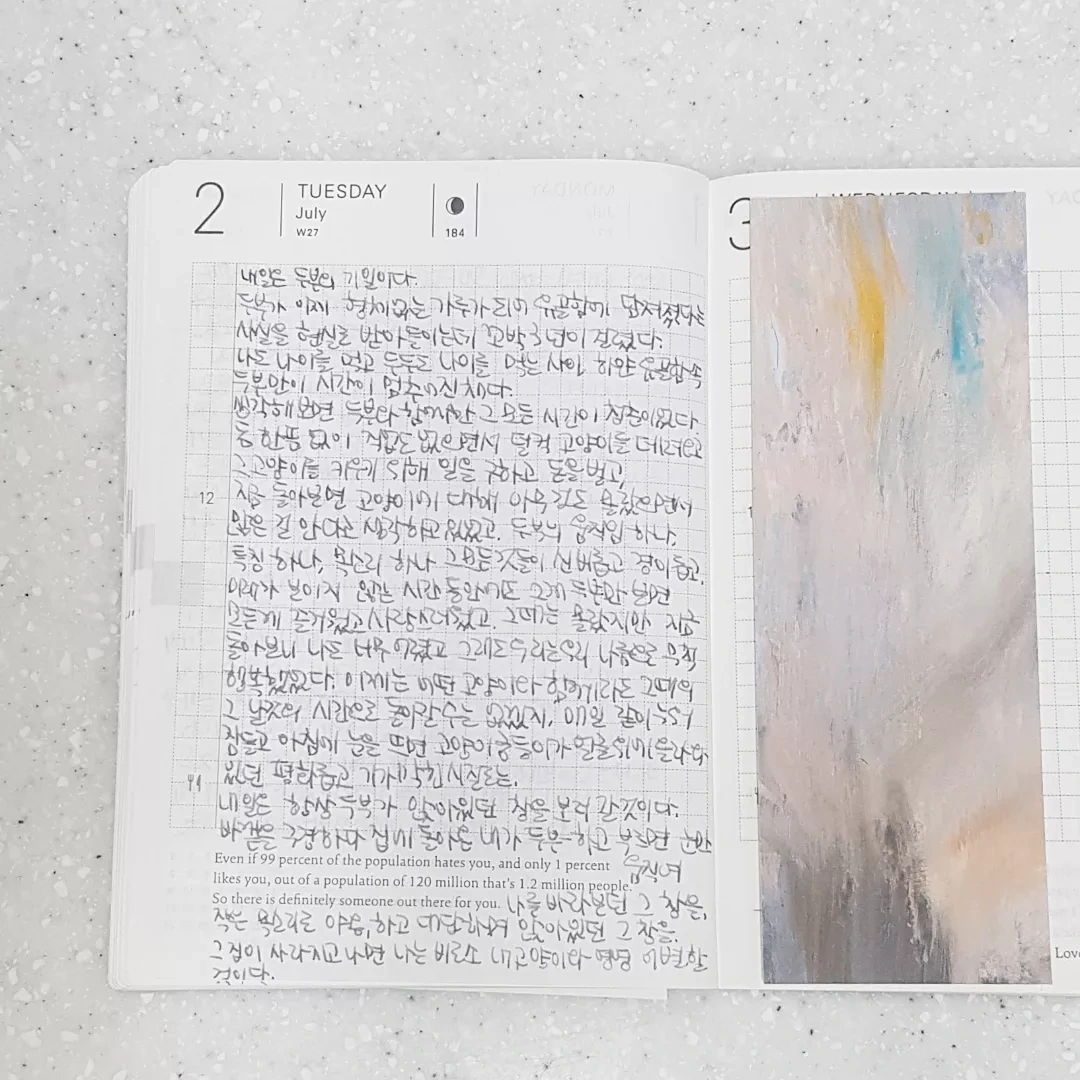 2
TUESDAY
July
W27
184
내일은 두부의 기일이다.
두부가 이제 형체없는 가루가 되어 유골함에 담겨졌다는
사실을 현실로 받아들이는데 꼬박 3년이 걸렸다.
나도 나이를 먹고 두둔도 나이를 먹는 사이, 하얀 유골함 속
두부만이 시간이 멈추어진 채다.
생각해보면 두부와 함께한 그 모든 시간이 청춘이었다
돈 한푼 없이 직업도 없으면서 덜컥 고양이를 데려오고
그 고양이를 키우기 위해 일을 구하고 돈을 벌고,
12
지금 돌아보면 고양이에 대해 아무것도 몰랐으면서
많은 걸 안다고 생각하고 있었고. 두부의 움직임 하나,
특징 하나, 목소리 하나 그 모든 것들이 신비롭고 경이롭고.
미래가 보이지 않는 시간 동안에도 그게 두부와 보면
모든게 즐거웠고 사랑스러웠고. 그때는 몰랐지만 지금
돌아보니 나도 너무 어렸고 그래도 우리는 우리 나름으로 무척
행복했었다. 이제는 어떤 고양이와 함께라도 그때의
그 날것의 시간으로 돌아갈 수는 없겠지. 매일 같이 늦게
잠들고 아침에 눈을 뜨면 고양이 궁둥이가 얼굴 위에 올라와
있던 평화롭고 기가 막힌 시절로는.
내일은 항상 두부가 앉아있던 창을 보러 갈 것이다.
바깥을 구경하다 집에 돌아온 내가 두부-하고 부르면 눈만
움직여
Even if 99 percent of the population hates you, and only 1 percent
likes you, out of a population of 120 million that's 1.2 million people.
So there is definitely someone out there for you.
나를 바라보던 그 창을,
작은 목소리로 야옹, 하고 대답하며 앉아있던 그 창을.
그 집이 사라지고 나면 나는 비로소 내 고양이와 영영 이별할
것이다.
3
WEDNESDAY
Love